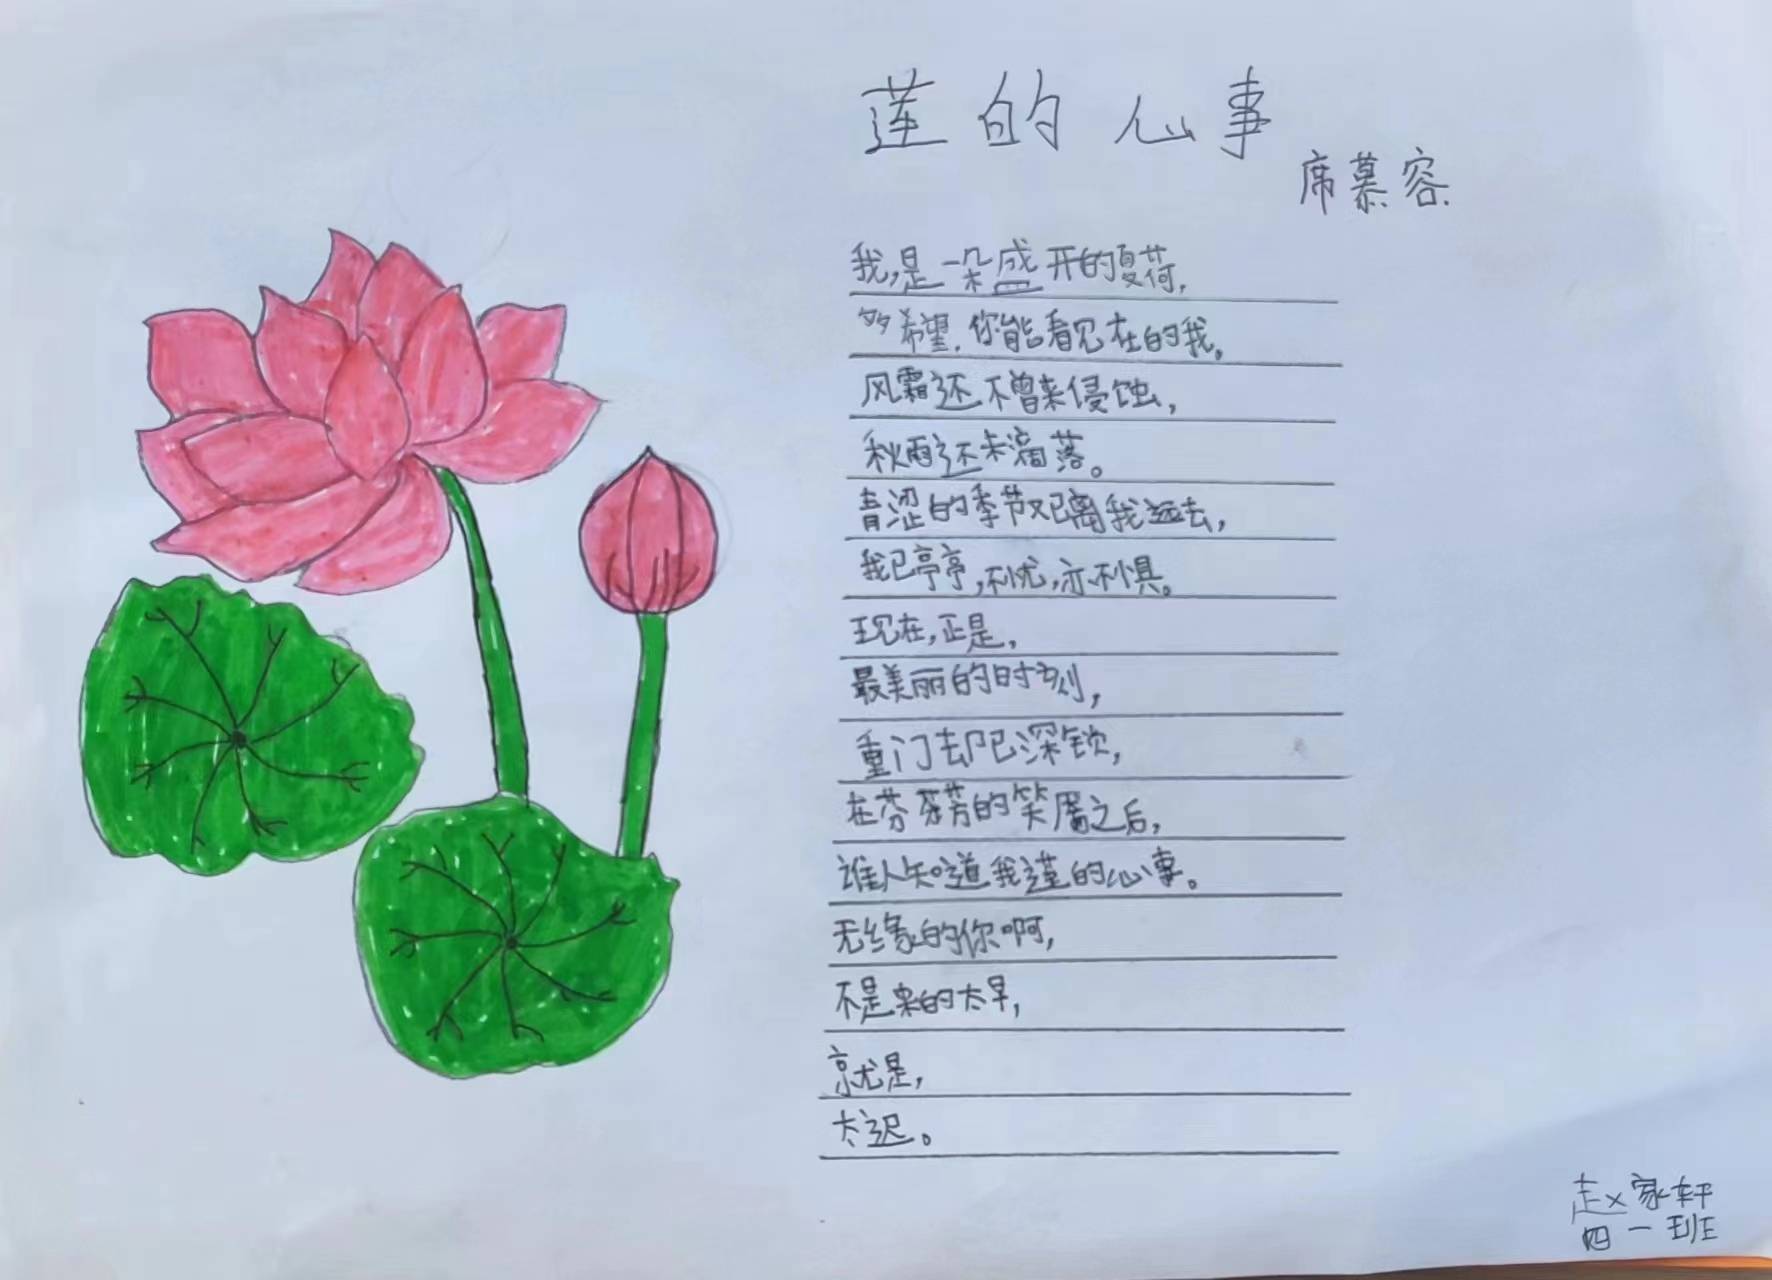 莲的心事
席慕容
我,是一朵盛开的夏荷,
多希望.你能看见在的我。
风霜还不曾来侵蚀,
秋雨还未滴落。
青涩的季节又已离我远去,
我已亭亭,不忧,亦不惧。
现在,正是,
最美丽的时刻,
重门却已深锁,
在芬芬芳的笑靥之后,
谁人知道我莲的心事。
无缘的你啊,
不是来的太早,
就是,
太迟。
赵家轩
四一班